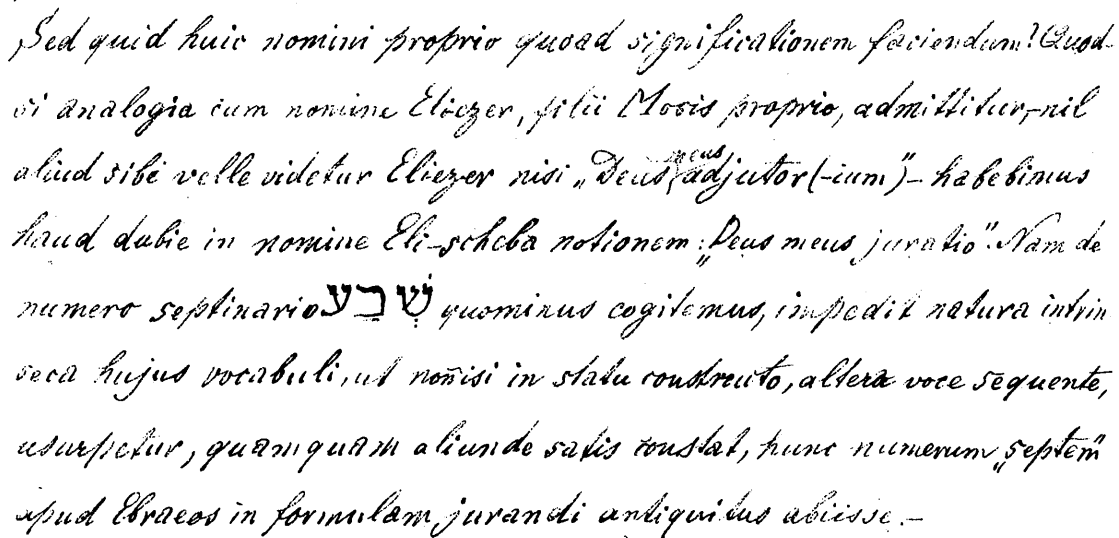 Sed quid huic nomini proprio quoad significationem faciendum? Quod-
si analogia cum nomine Eliezer, filii Mosis proprio, admittitur,—nil
aliud sibi velle videtur Eliezer nisi „Deus meus adjutor (-ium)"— habebimus
haud dubie in nomine Eli-scheba notionem: „Deus meus juratio". Nam de
numero septinario שְׁבַע quominus cogitemus, impedit natura intrin
seca hujus vocabuli, ut nonnisi in statu constructo, altera voce sequente,
usurpetur, quamquam aliunde satis constat, hunc numerum „septem"
apud Ebraeos in formulam jurandi antiquitus abiisse.—